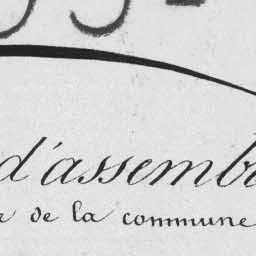 d'assemb
de la commune